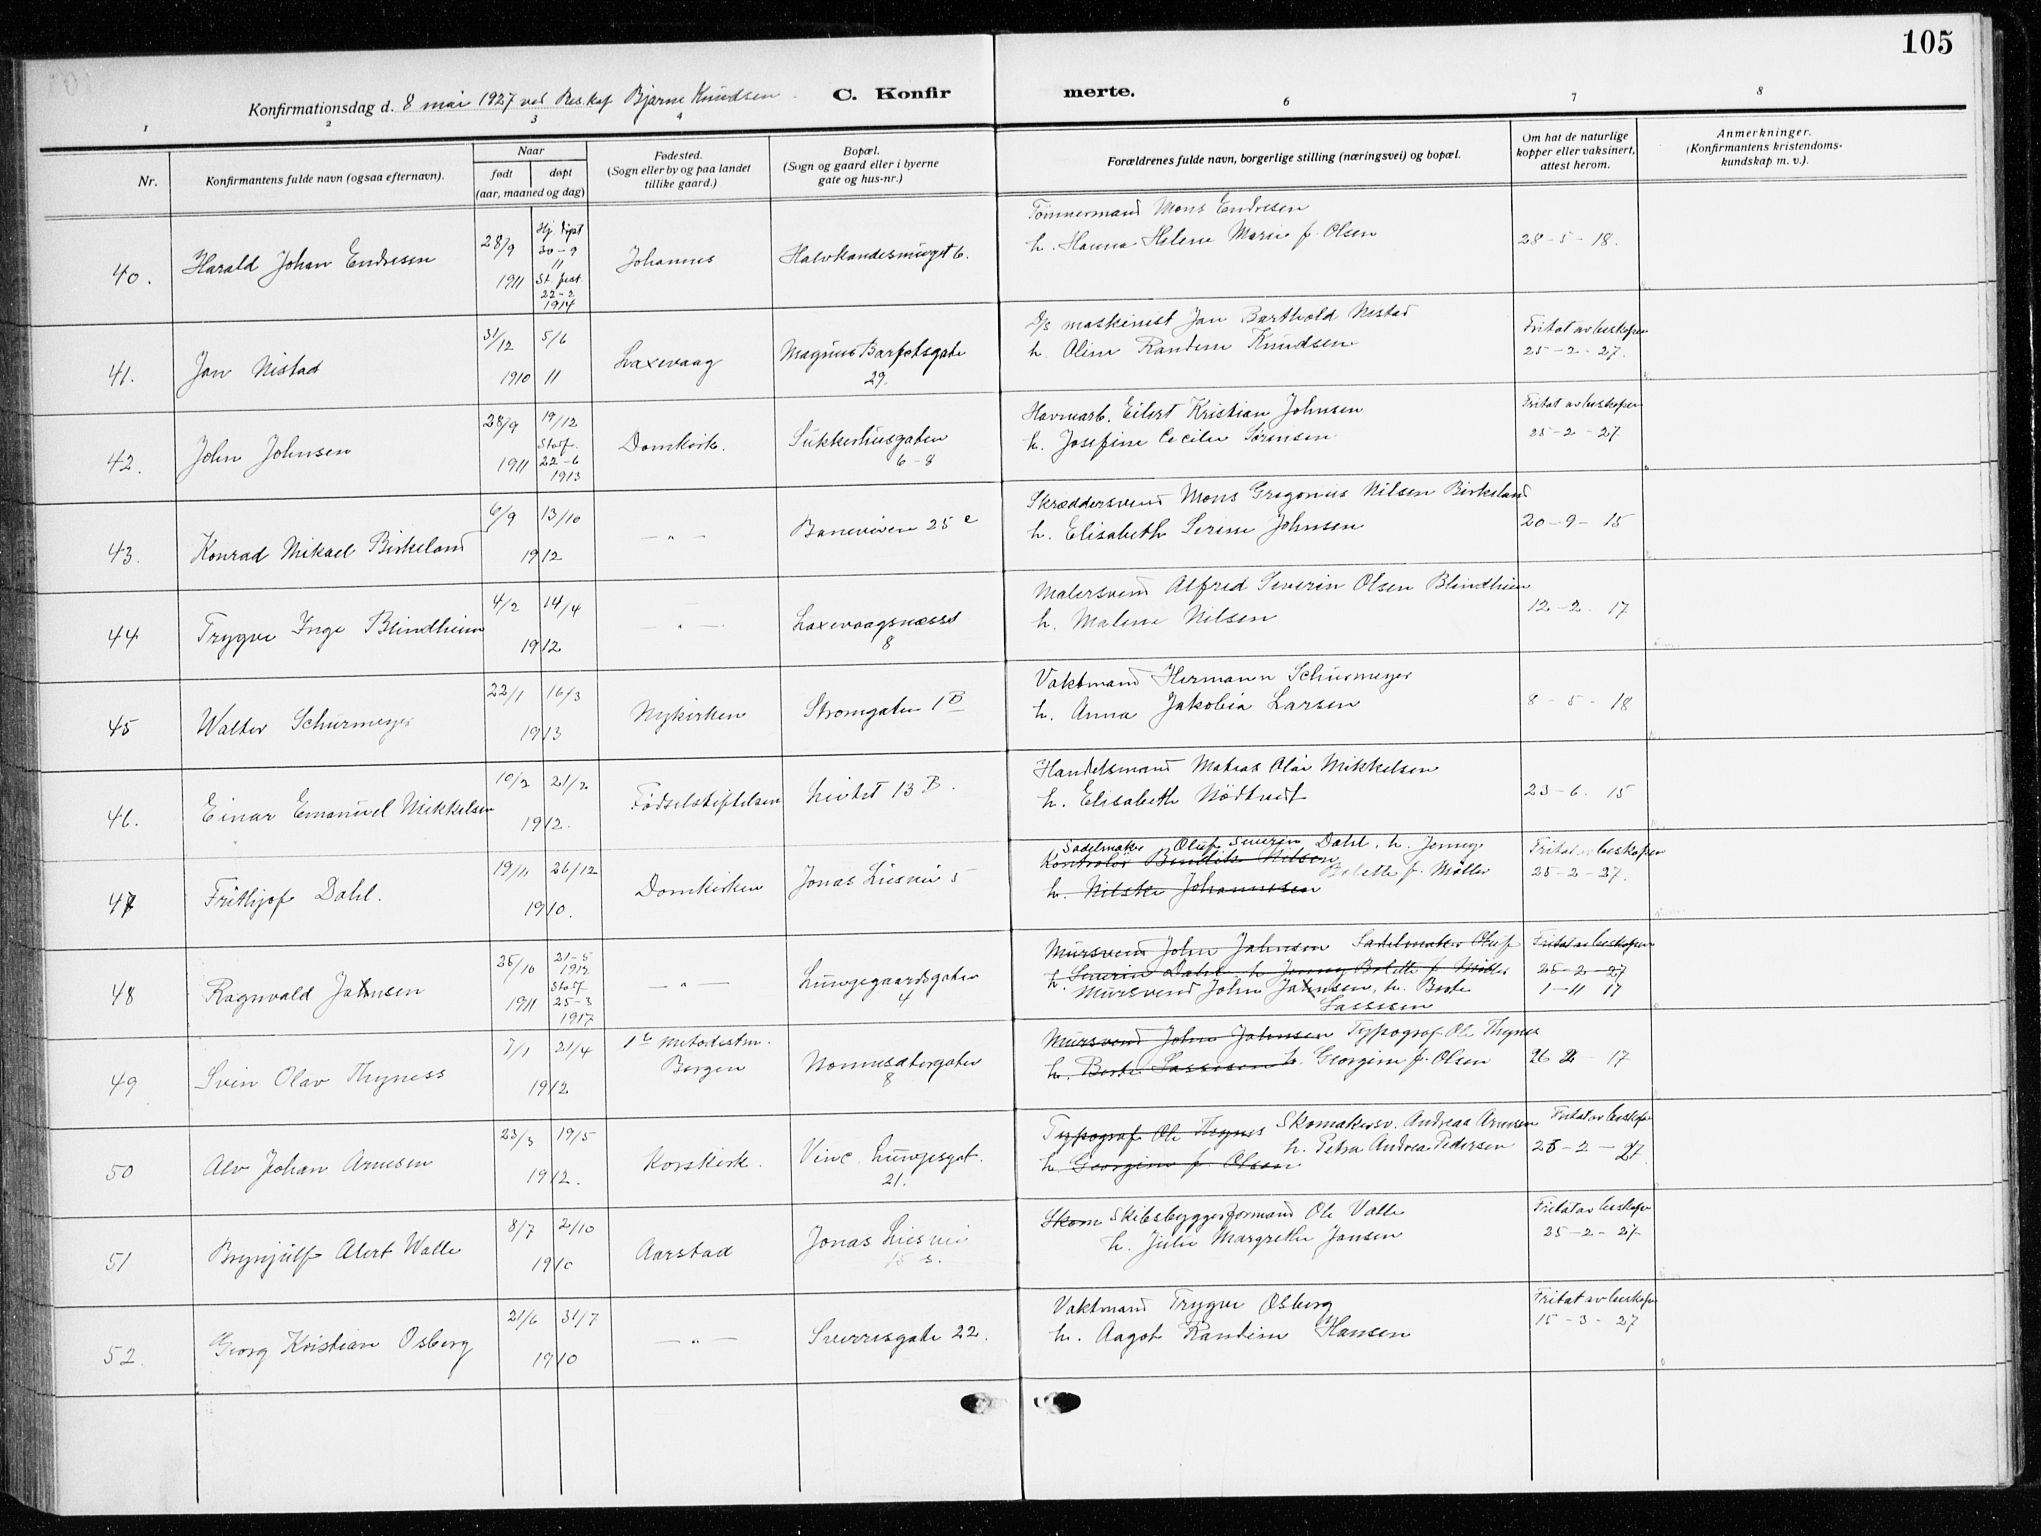 105
Konfirmationsdag d. 8 mai 1927 ved Res. kap Bjarne Knudsen
C. Konfirmerte.
1 2 3 4 6 7 8
Nr.
Konfirmantens fulde navn (ogsaa efternavn).
Naar
født døpt
(aar, maaned og dag)
Fødested.
(Sogn eller by og paa landet
tillike gaard.)
Bopæl.
(Sogn og gaard eller i byerne
gate og hus-nr.)
Forældrenes fulde navn, borgerlige stilling (næringsvei) og bopæl.
Om hat de naturlige
kopper eller vaksinert,
attest herom.
Anmerkninger.
(Konfirmantens kristendoms-
kundskap m. v.).
40. Harald Johan Endresen
28/9 1911
Hj. døpt
30-9
11
St. fest
22-2
1914
Johannes
Halvkandesmuget 6.
Tømmermand Mons Endresen
h. Hanna Helene Marie f. Olsen
28-5-18.
41. Jan Nistad
31/12 1910
5/6 11
Laxevaag
Magnus Barfotsgate
29.
D/s maskinist Jan Barthold Nestad
h. Oline Randine Knudsen
Fritat av beskopen
25-2-27.
42. John Johnsen
28/9 1911
19/12
Stadf.
22-6
1913
Domkirk.
Sukkerhusgaten
6-8
Havnearb. Eilert Kristian Johnsen
h. Josefine Cecilie Sørensen
Fritat av beskopen
25-2-27
43. Konrad Mikael Birkeland
6/9 13/10
1912
— " —
Baneveien 25 c
Skræddersvend Mons Gregorius Nilsen Birkeland
h. Elisabeth Serine Johnsen
20-9-15
44 Trygve Inge Blindheim
4/2 14/4
1912
— " —
Laxevaagsnesset
8
Malersvend Alfred Severin Olsen Blindheim
h. Malene Nilsen
12-2-17
45 Walter Schürmeyer
22/1 16/3
1913
Nykirken
Strømgaten 1 B
Vaktmand Hermann Schürmeyer
h. Anna Jakobia Larsen
8-5-18
46. Einar Emanuel Mikkelsen
10/2 21/2
1912.
Fødselstiftelsen
13 B.
Handelsmand Matias Olai Mikkelsen
h. Elisabeth Nödtvedt
23-6.15
47 Frithjof Dahl.
19/11 26/12
1910.
Domkirken
Jonas Liesvei 5
Sadelmaker Oluf Severin Dahl, h. Jenny
Kontrolør Bendik Nilsen Bolette f. Møller
h. Nilske Johannesen
Fritat av beskopen
25-2-27.
48 Ragnvald Jahnsen
25/10 1911
21-5
1912
Stadf.
25-3
1917
— " —
Lungegaardsgaten
4
Mursvend John Jahnsen Sadelmaker Oluf
h. Severin Dahl h. Jenny Bolette f. Møller
Mursvend John Jahnsen, h. Berte
Sassesen
Fritat av beskopen
25-2-27
1-11 17
49 Svein Olav Thyness
7/1 21/4
1912
1ste Metodistm.
Bergen
Nonnesætergaten
8
Mursvend John Jahnsen Typograf Ole Thynes
h. Berte Sassesen h. Georgine f. Olsen
26 2-17
50 Alv Johan Arnesen
23/3 19/5
1912.
Korskirk.
Vinc. Lungesgat.
21.
Typograf Ole Thynes Skomakersv. Andreas Arnesen
h. Georgine f. Olsen h. Petra Andrea Pedersen
Fritat av beskopen
25-2-27
51 Brynjulf Alert Walle
8/7 2/10
1910
Aarstad
Jonas Liesvei
15 3.
Skom Skibsbyggerformand Ole Valle
h. Julie Margrethe Jansen
Fritat av beskopen
25-2-27
52. Georg Kristian Osberg
21/6 31/7
1910
— " —
Sverresgate 22.
Vaktmand Trygve Osberg
h. Aagot Randine Hansen
Fritat av beskopen
15-3-27